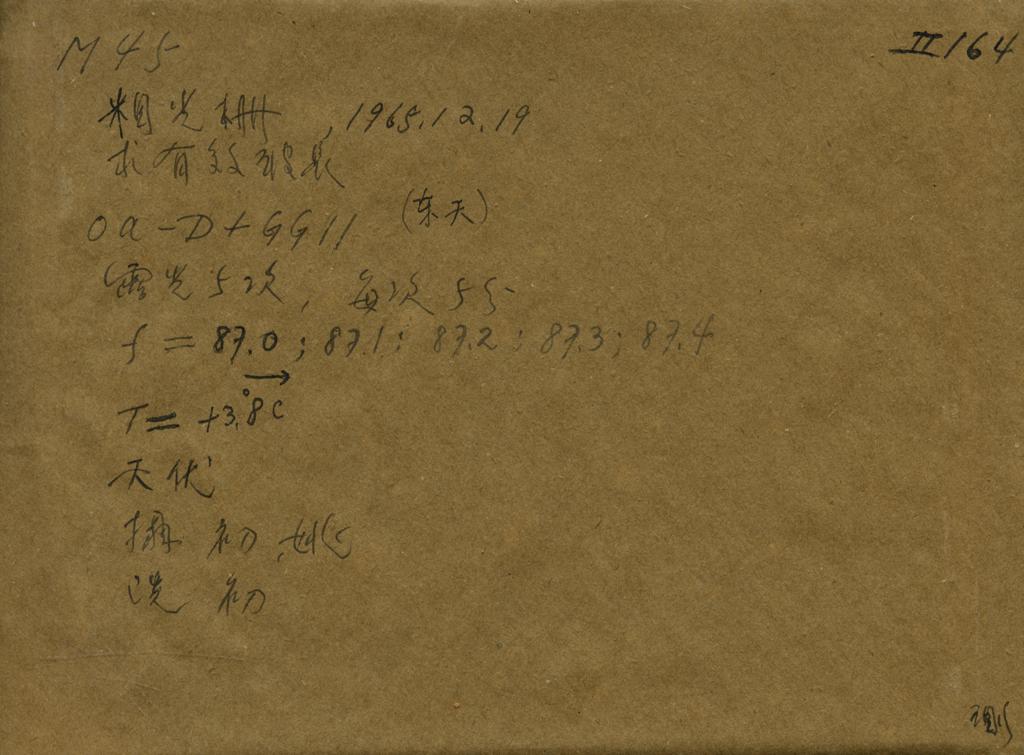 M45
II 164
粗光栅, 1965.12.19
求有效波长
Oa-D+GG11 (东天)
露光5次, 每次5分
f = 87.0; 87.1; 87.2; 87.3; 87.4
→
T = +3.°8C
天伏
摄 初 姚
洗 初